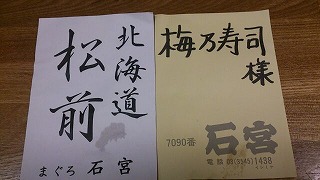 北海道
松前
まぐろ 石宮
梅乃寿司
様
7090番
石宮
電話 (3545)1438